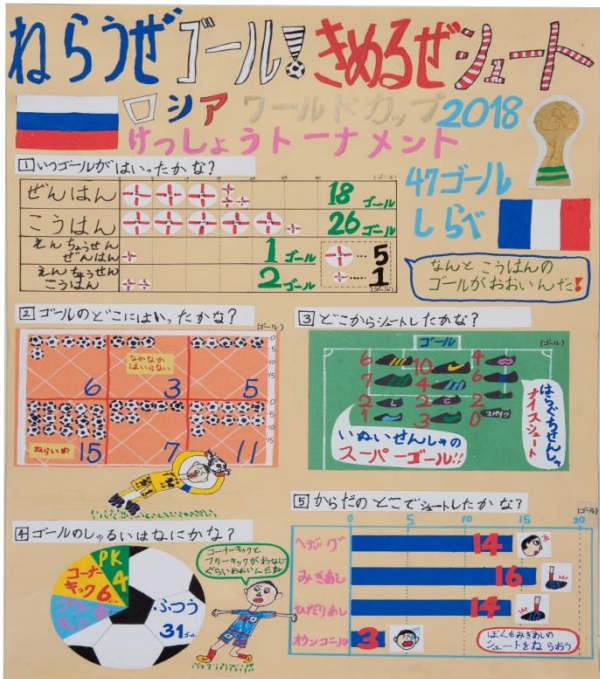 ねらうぜゴール!きめるぜシュート
ロシアワールドカップ2018
けっしょうトーナメント
47ゴール
しらべ
1 いつゴールがはいったかな?
(ゴール)
ぜんはん 18ゴール
こうはん 26ゴール
えんちょうせん
ぜんはん 1ゴール
えんちょうせん
こうはん 2ゴール
…5
…1
(ゴール)
なんと こうはんの
ゴールがおおいんだ!
2 ゴールのどこにはいったかな?
(ゴール)
0
5
10
15
なかなか
はいらない
6 3 5
0
5
10
15
ねらいめ
15 7 11
3 どこからシュートしたかな?
(ゴール)
ゴール
6 10 4
7 4 6
2 2 2
1 3 0 スパイク
いぬいせんしゅの
スーパーゴール!!
はらぐちせんしゅ
ナイスシュート
4 ゴールのしゅるいはなにかな?
PK
4
コーナー
キック6
フリー
キック6
ふつう
31ゴール
コーナーキックと
フリーキックがおなじ
ぐらいおおいんだね
5 からだのどこでシュートしたかな?
(ゴール)
0 5 10 15 20
ヘディング 14
みぎあし 16
ひだりあし 14
オウンゴール 3
ぼくもみぎあしの
シュートをねらおう